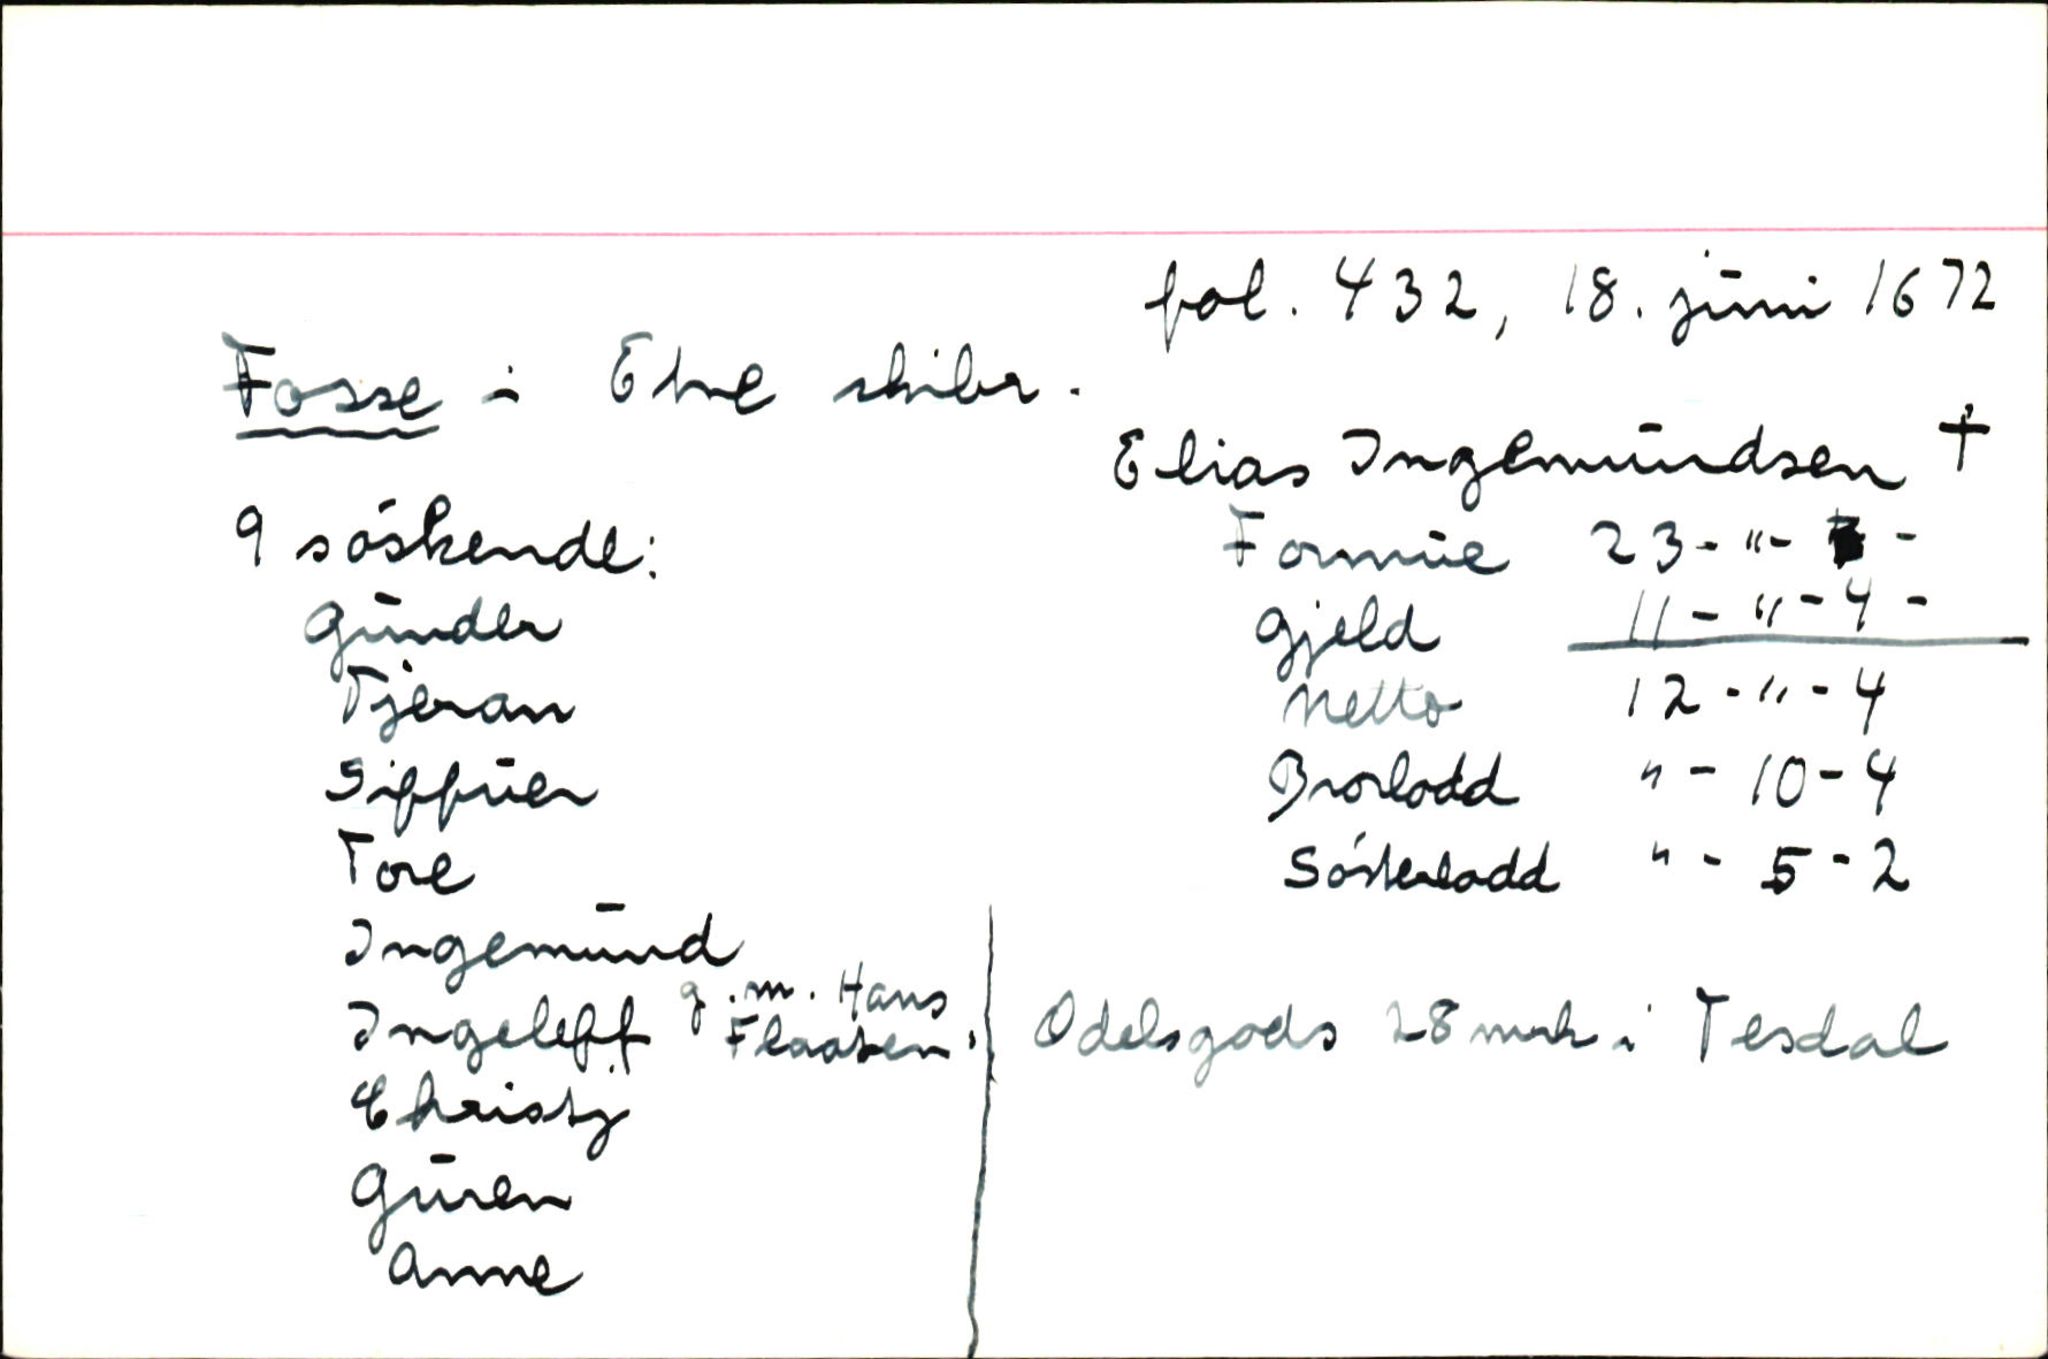 fol. 432, 18. juni 1672
Fosse i Etne skibr.
Elias Ingemundsen †
9 søskende:
Formue 23 - " - -
Gunder
Gjeld 11 - " - 4 -
Tjeran
Netto 12 - " - 4
Siffuer
Brorlodd " - 10 - 4
Tore
Søsterlodd " - 5 - 2
Ingemund
Ingeleff g.m. Hans Flaaten.
Odelsgods 28 mrk i Tesdal
Christj
Guren
Anne